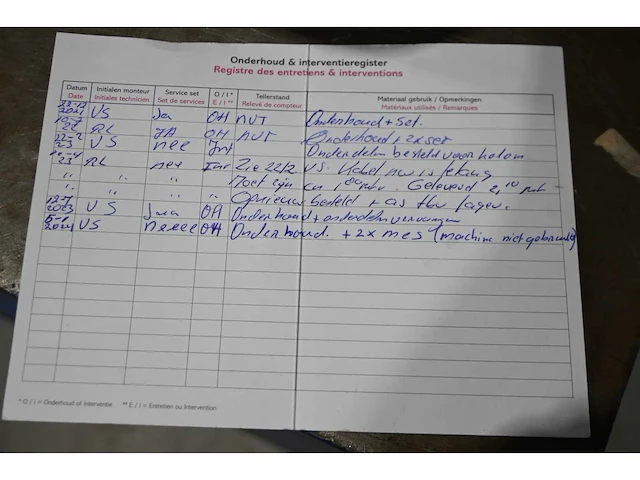 Onderhoud & interventieregister
Registre des entretiens & interventions
Datum Date Initialen monteur Initiales technicien Service set Set de services O / I * E / I ** Tellerstand Relevé de compteur Materiaal gebruik / Opmerkingen Matériaux utilisés / Remarques
2021 VS Ja OH NUT Onderhoud + Set.
22 RL JA OH NUT Onderhoud + 2x set
22-2 23 VS nee Int Onderdelen besteld voor kolom
23 RL nee Int Zie 22/2 VS. Kabel nu is
" " " " Moet zijn Geleverd
" " " " Opnieuw besteld + as tbv lager.
12-7 2023 VS Jaa OH Onderhoud + onderdelen vervangen
2024 VS neeee OH Onderhoud. + 2x mes (machine niet gebruikt)
* O / I = Onderhoud of Interventie ** E / I = Entretien ou Intervention